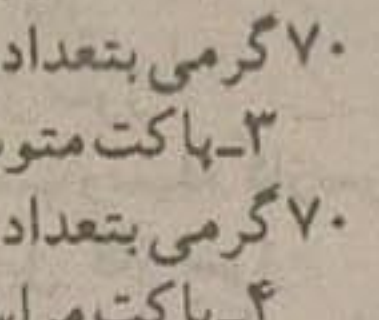 ۷۰ گرمی بتعداد
۳ـ پاکت متو
۷۰ گرمی بتعداد
۴ـ پاکت